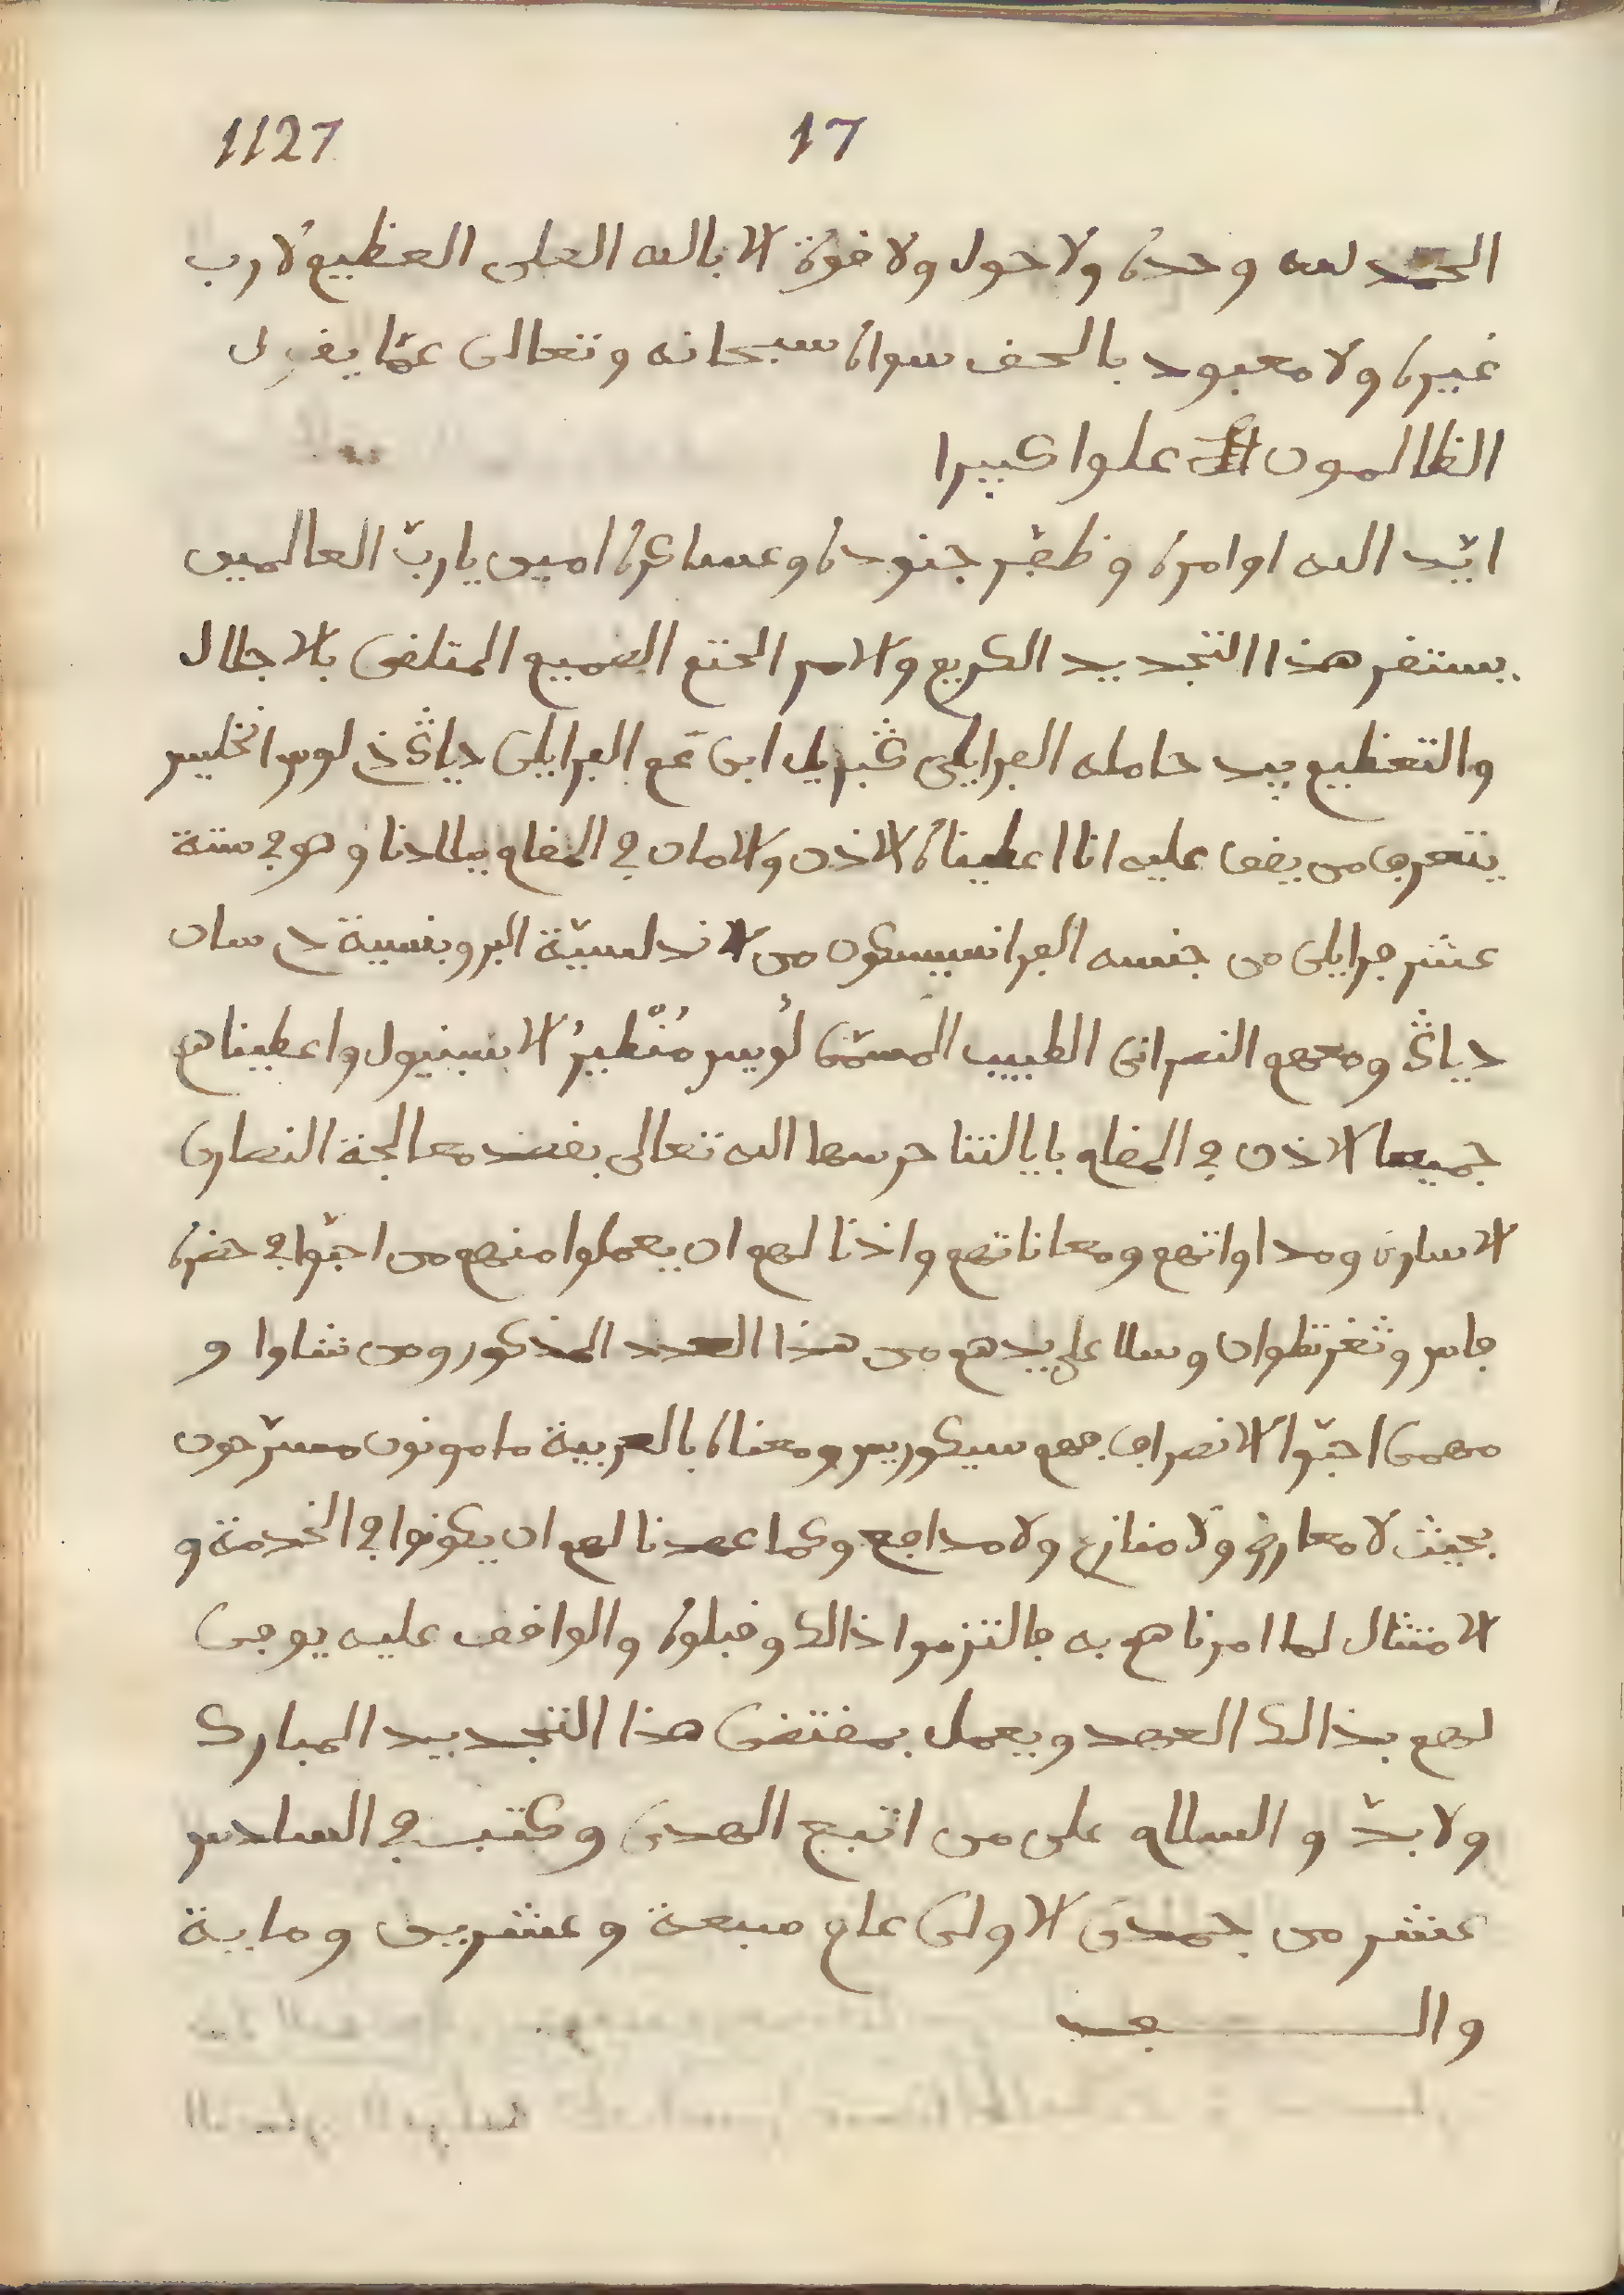 1127 17
الحمد لله وحده ولا حول ولا قوة الا بالله العلى العظيم لا رب
غيره ولا معبود بالحق سواه سبحانه وتعالى عمّا يقول
الظالمون علوا كبيرا
ايّد الله اوامره وظفّر جنوده وعساكره امين يا ربّ العالمين
يستقر هذا التجديد الكريم والامر الحتم الصميم المتلقى بالاجلال
والتعظيم بيد حامله الفرايلى ڭبريل ابن عم الفرايلى دياڭ لوس انڭليس
يتعرف من يقف عليه انا اعطيناه الاذن والامان في المقام ببلادنا وهو في ستة
عشر فرايلى من جنسه الفرانسيسكون من الاندلسيّة البروبنسية د سان
دياڭ ومعهم النصرانى الطبيب المسمّى لُويس مُنْطِيرُ الاسبنيول واعطيناهم
جميعا الاذن في المقام بايالتنا حرسها الله تعالى بقصد معالجة النصارى
الاسارى ومداواتهم ومعاناتهم واذنا لهم ان يعملوا منهم من احبّوا في حضرة
فاس وثغر تطوان وسلا على يدهم من هذا العدد المذكور ومن شاوا و
مهمى احبّوا الانصراف فهم سيكوريس ومعناه بالعربية مامونون مسرّحون
بحيث لا معارض ولا منازع ولا مدافع وكما عهدنا لهم ان يكونوا في الخدمة و
الامتثال لما امرناهم به فالتزموا ذالك وقبلوه والواقف عليه يوفى
لهم بذالك العهد ويعمل بمقتضى هذا التجديد المبارك
ولا بدّ والسلام على من اتبع الهدى وكتب في السادس
عشر من جمدى الاولى عام سبعة وعشرين وماية
والف